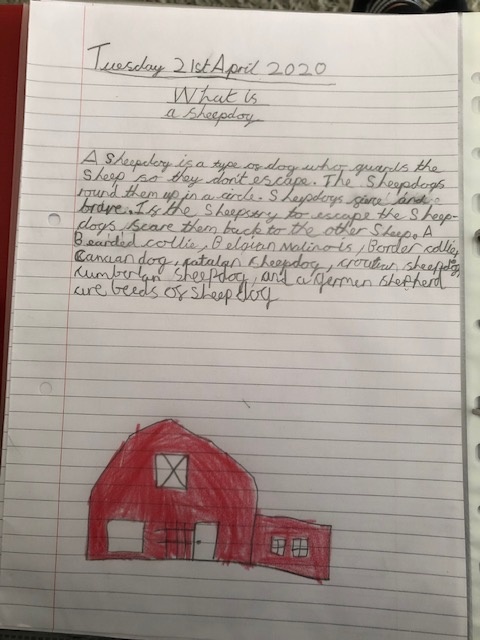 Tuesday 21st April 2020
What is
a sheepdog
A Sheepdog is a type of dog who guards the
Sheep so they don't escape. The Sheepdogs
round them up in a circle. Sheepdogs and
brave. If the Sheeps try to escape the Sheep-
dogs scare them back to the other Sheep. A
Bearded collie, Belgian malinois, Border collie,
Canaan dog, katalan sheepdog, sheepdog,
kumberlan sheepdog, and a Germen shepherd
are beeds of sheepdog